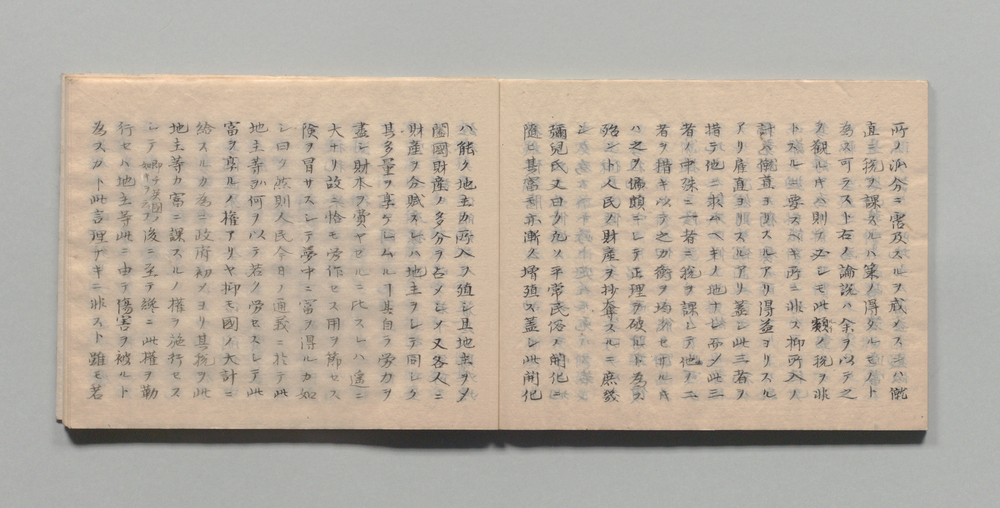 所ノ派分ニ害及スルヲ戒ノミ ハ既
直ニ税ヲ課スルハ策ノ得タルモノト
為ス可ラスト右ノ論説ハ余ヲ以テ之
ヲ観ルキハ則チ必シモ此類ノ税ヲ非
トスルニ要スベキ所ニ非ス抑所入ノ
計ハ僦直ヨリスルアリ得益ヨリスル
アリ雇直ヨリスルアリ蓋シ此三者ヲ
措テ他ニ求ムヘキノ地ナシ而メ此三
者ノ中殊ニ一者ニ税ヲ課シテ他ノ二
者ヲ措キ以テ之カ衡ヲ均 セサルキ
ハ之ヲ偏頗ニシテ正理ヲ破ルト為ス
殆ント人民ノ財産ヲ抄奪スルニ庶幾
シ
彌児氏又曰ク凡ソ平常民俗ノ開化ニ
随ヒ其富 亦漸ク増殖ス蓋シ此開化
ハ能ク地主カ所入ヲ殖シ其地主ヲメ
闔國財産ノ多分ヲ占メシメ又各人ニ
財産ヲ分賦スレハ地主ヲシテ同シク
其多量ヲ享ケシムルー其自ラ労力ヲ
盡シ財本ヲ費ヤセルニ比スレハ遙ニ
大ナリ故ニ恰モ労作セス用ヲ節セス
険ヲ冒サスシテ夢中ニ富ヲ得ルカ如
シ曰ク然則人民今日ノ通義ニ於テ此
地主等ハ何ヲ以テ若ク労セスシテ此
富ヲ享ルノ権アリヤ抑モ國ノ大計ニ
給スルカ為ニ政府初メヨリ其税ヲ此
地主等カ富ニ課スルノ権ヲ施行セス
シテ 後ニ至テ終ニ此権ヲ勤
行セハ地主等此ニ由テ傷害ヲ被ルト
為スカト此言理ナキニ非スト雖モ若